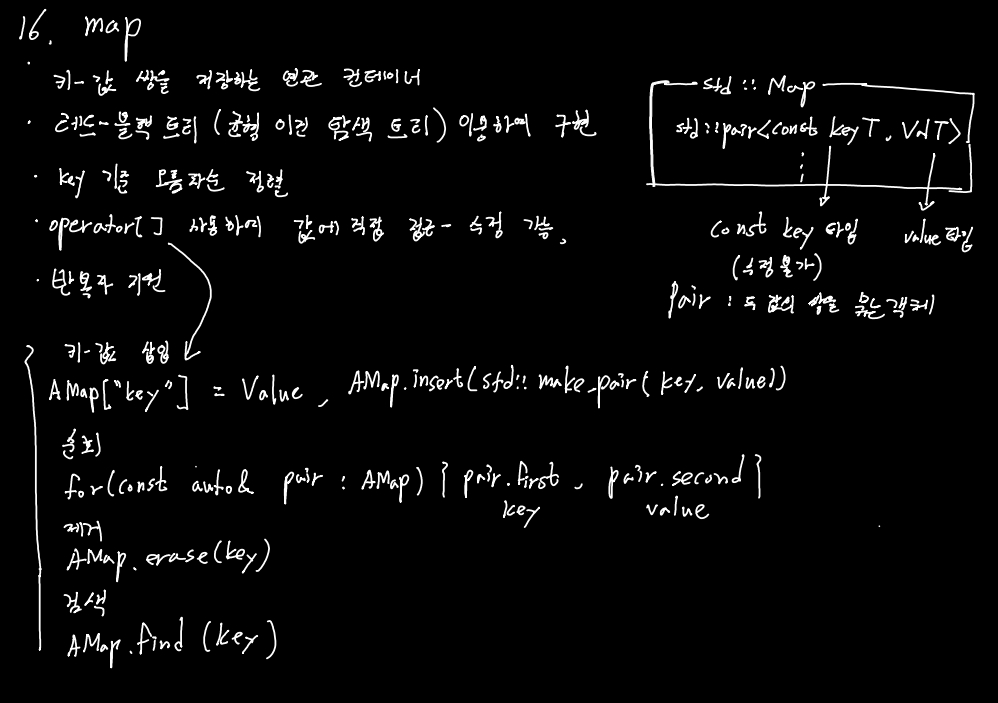 16. map
· 키-값 쌍을 저장하는 연관 컨테이너
· 레드-블랙 트리 (균형 이진 탐색 트리) 이용하여 구현
· key 기준 오름차순 정렬
· operator[] 사용하여 값에 직접 접근-수정 가능,
· 반복자 지원
std :: Map
std::pair<const keyT, ValT>
const key 타입
(수정 불가)
value 타입
pair : 두 값의 쌍을 묶는 객체
키-값 삽입
AMap["key"] = Value , AMap.insert(std::make_pair(key, value))
순회
for(const auto& pair : AMap) { pair.first , pair.second }
key
value
제거
AMap.erase(key)
검색
AMap.find (key)